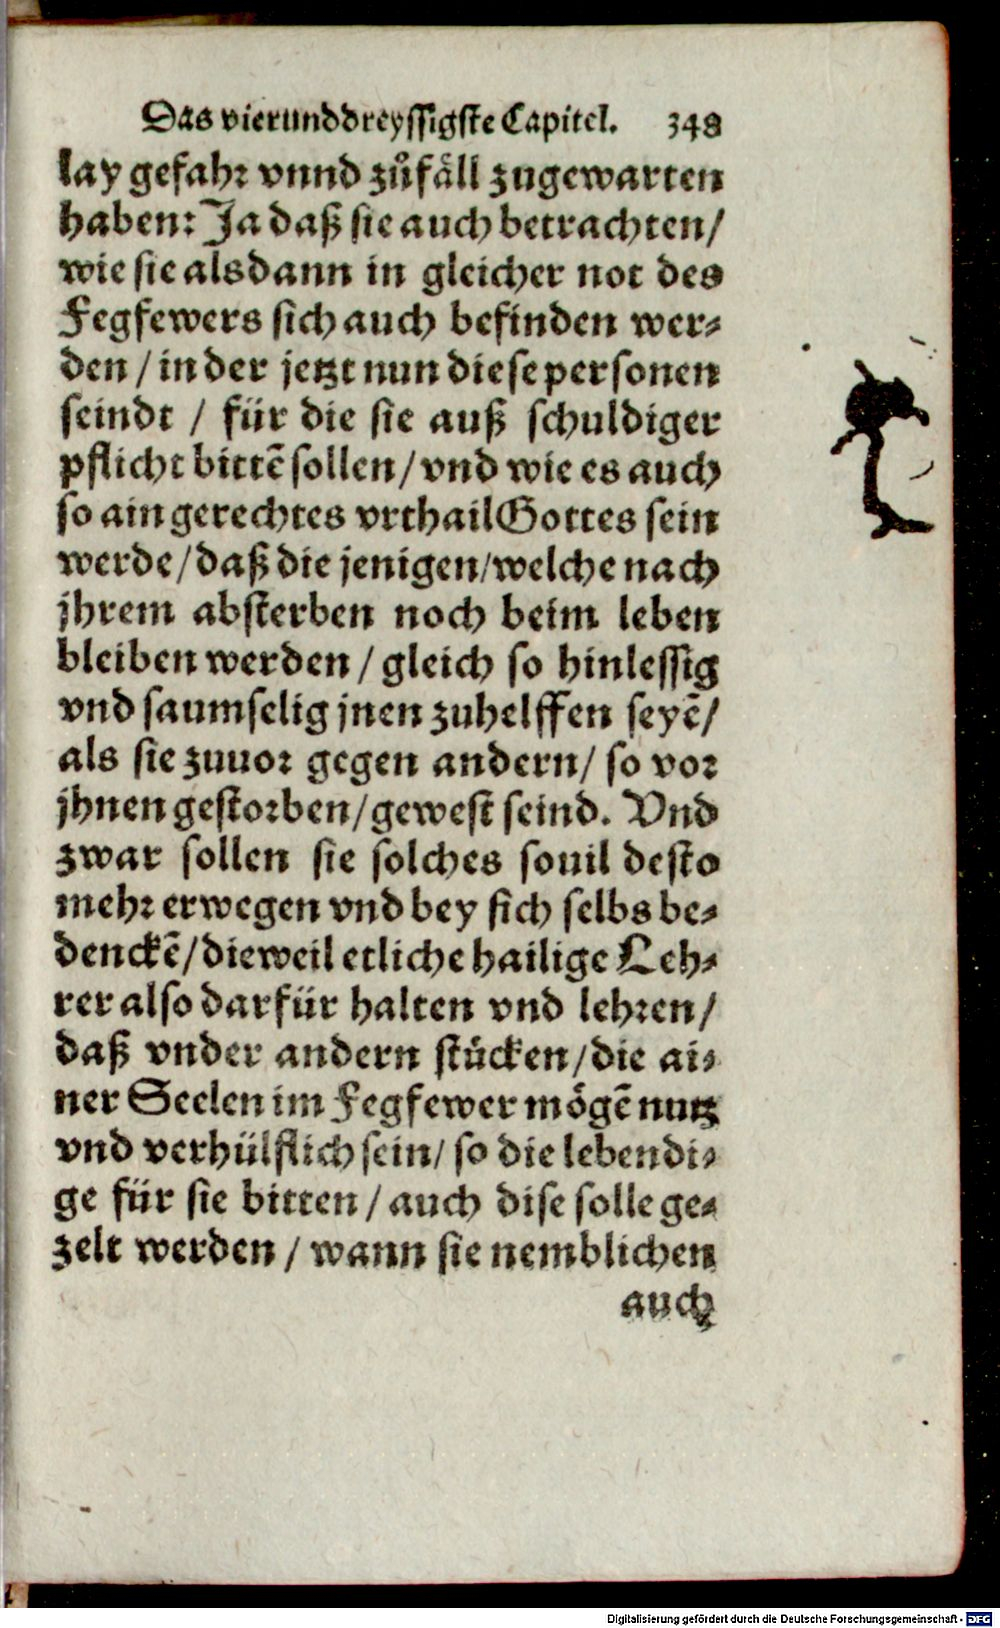 Das vierunddreyssigste Capitel. 348
lay gefahr vnnd zůfäll zugewarten
haben: Ja daß sie auch betrachten/
wie sie alsdann in gleicher not des
Fegfewers sich auch befinden wer-
den / in der jetzt nun diese personen
seindt / für die sie auß schuldiger
pflicht bittē sollen/ vnd wie es auch
so ain gerechtes vrthail Gottes sein
werde/ daß die jenigen/welche nach
jhrem absterben noch beim leben
bleiben werden / gleich so hinlessig
vnd saumselig jnen zuhelffen seyē/
als sie zuuor gegen andern/ so vor
jhnen gestorben/gewest seind. Vnd
zwar sollen sie solches souil desto
mehr erwegen vnd bey sich selbs be-
denckē/dieweil etliche hailige Leh-
rer also darfür halten vnd lehren/
daß vnder andern stücken/die ai-
ner Seelen im Fegfewer mögē nutz
vnd verhülflich sein/ so die lebendi-
ge für sie bitten / auch dise solle ge-
zelt werden / wann sie nemblichen
auch
Digitalisierung gefördert durch die Deutsche Forschungsgemeinschaft - DFG